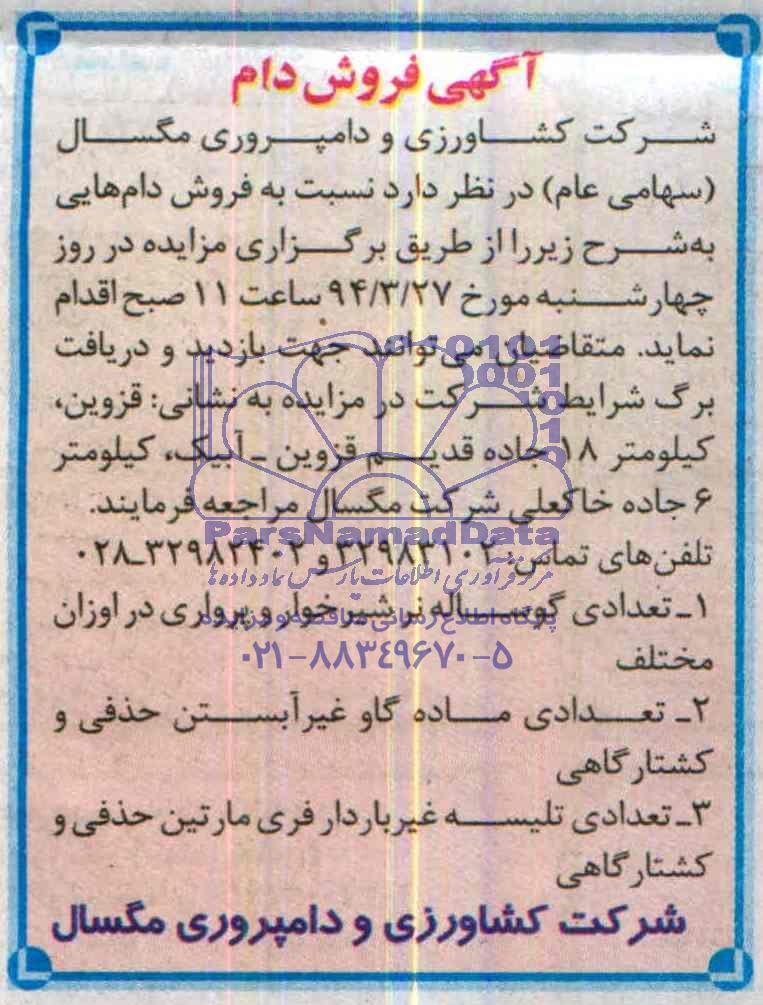 آگهی فروش دام
شرکت کشاورزی و دامپروری مگسال
(سهامی عام) در نظر دارد نسبت به فروش دام‌هایی
به‌شرح زیر را از طریق برگزاری مزایده در روز
چهارشنبه مورخ ۹۴/۳/۲۷ ساعت ۱۱ صبح اقدام
نماید. متقاضیان می‌توانند جهت بازدید و دریافت
برگ شرایط شرکت در مزایده به نشانی: قزوین،
کیلومتر ۱۸ جاده قدیم قزوین ـ آبیک، کیلومتر
۶ جاده خاکعلی شرکت مگسال مراجعه فرمایند.
ParsNamadData
تلفن‌های تماس: ۳۲۹۸۳۱۰۲ و ۳۲۹۸۳۴۰۲ـ۰۲۸
مرکز فرآوری اطلاعات پارس نماد داده‌ها
۱ـ تعدادی گوساله نر شیرخوار و پرواری در اوزان
پایگاه اطلاع رسانی مناقصه و مزایده
مختلف
۰۲۱-۸۸۳۴۹۶۷۰-۵
۲ـ تعدادی ماده گاو غیرآبستن حذفی و
کشتارگاهی
۳ـ تعدادی تلیسه غیرباردار فری مارتین حذفی و
کشتارگاهی
شرکت کشاورزی و دامپروری مگسال